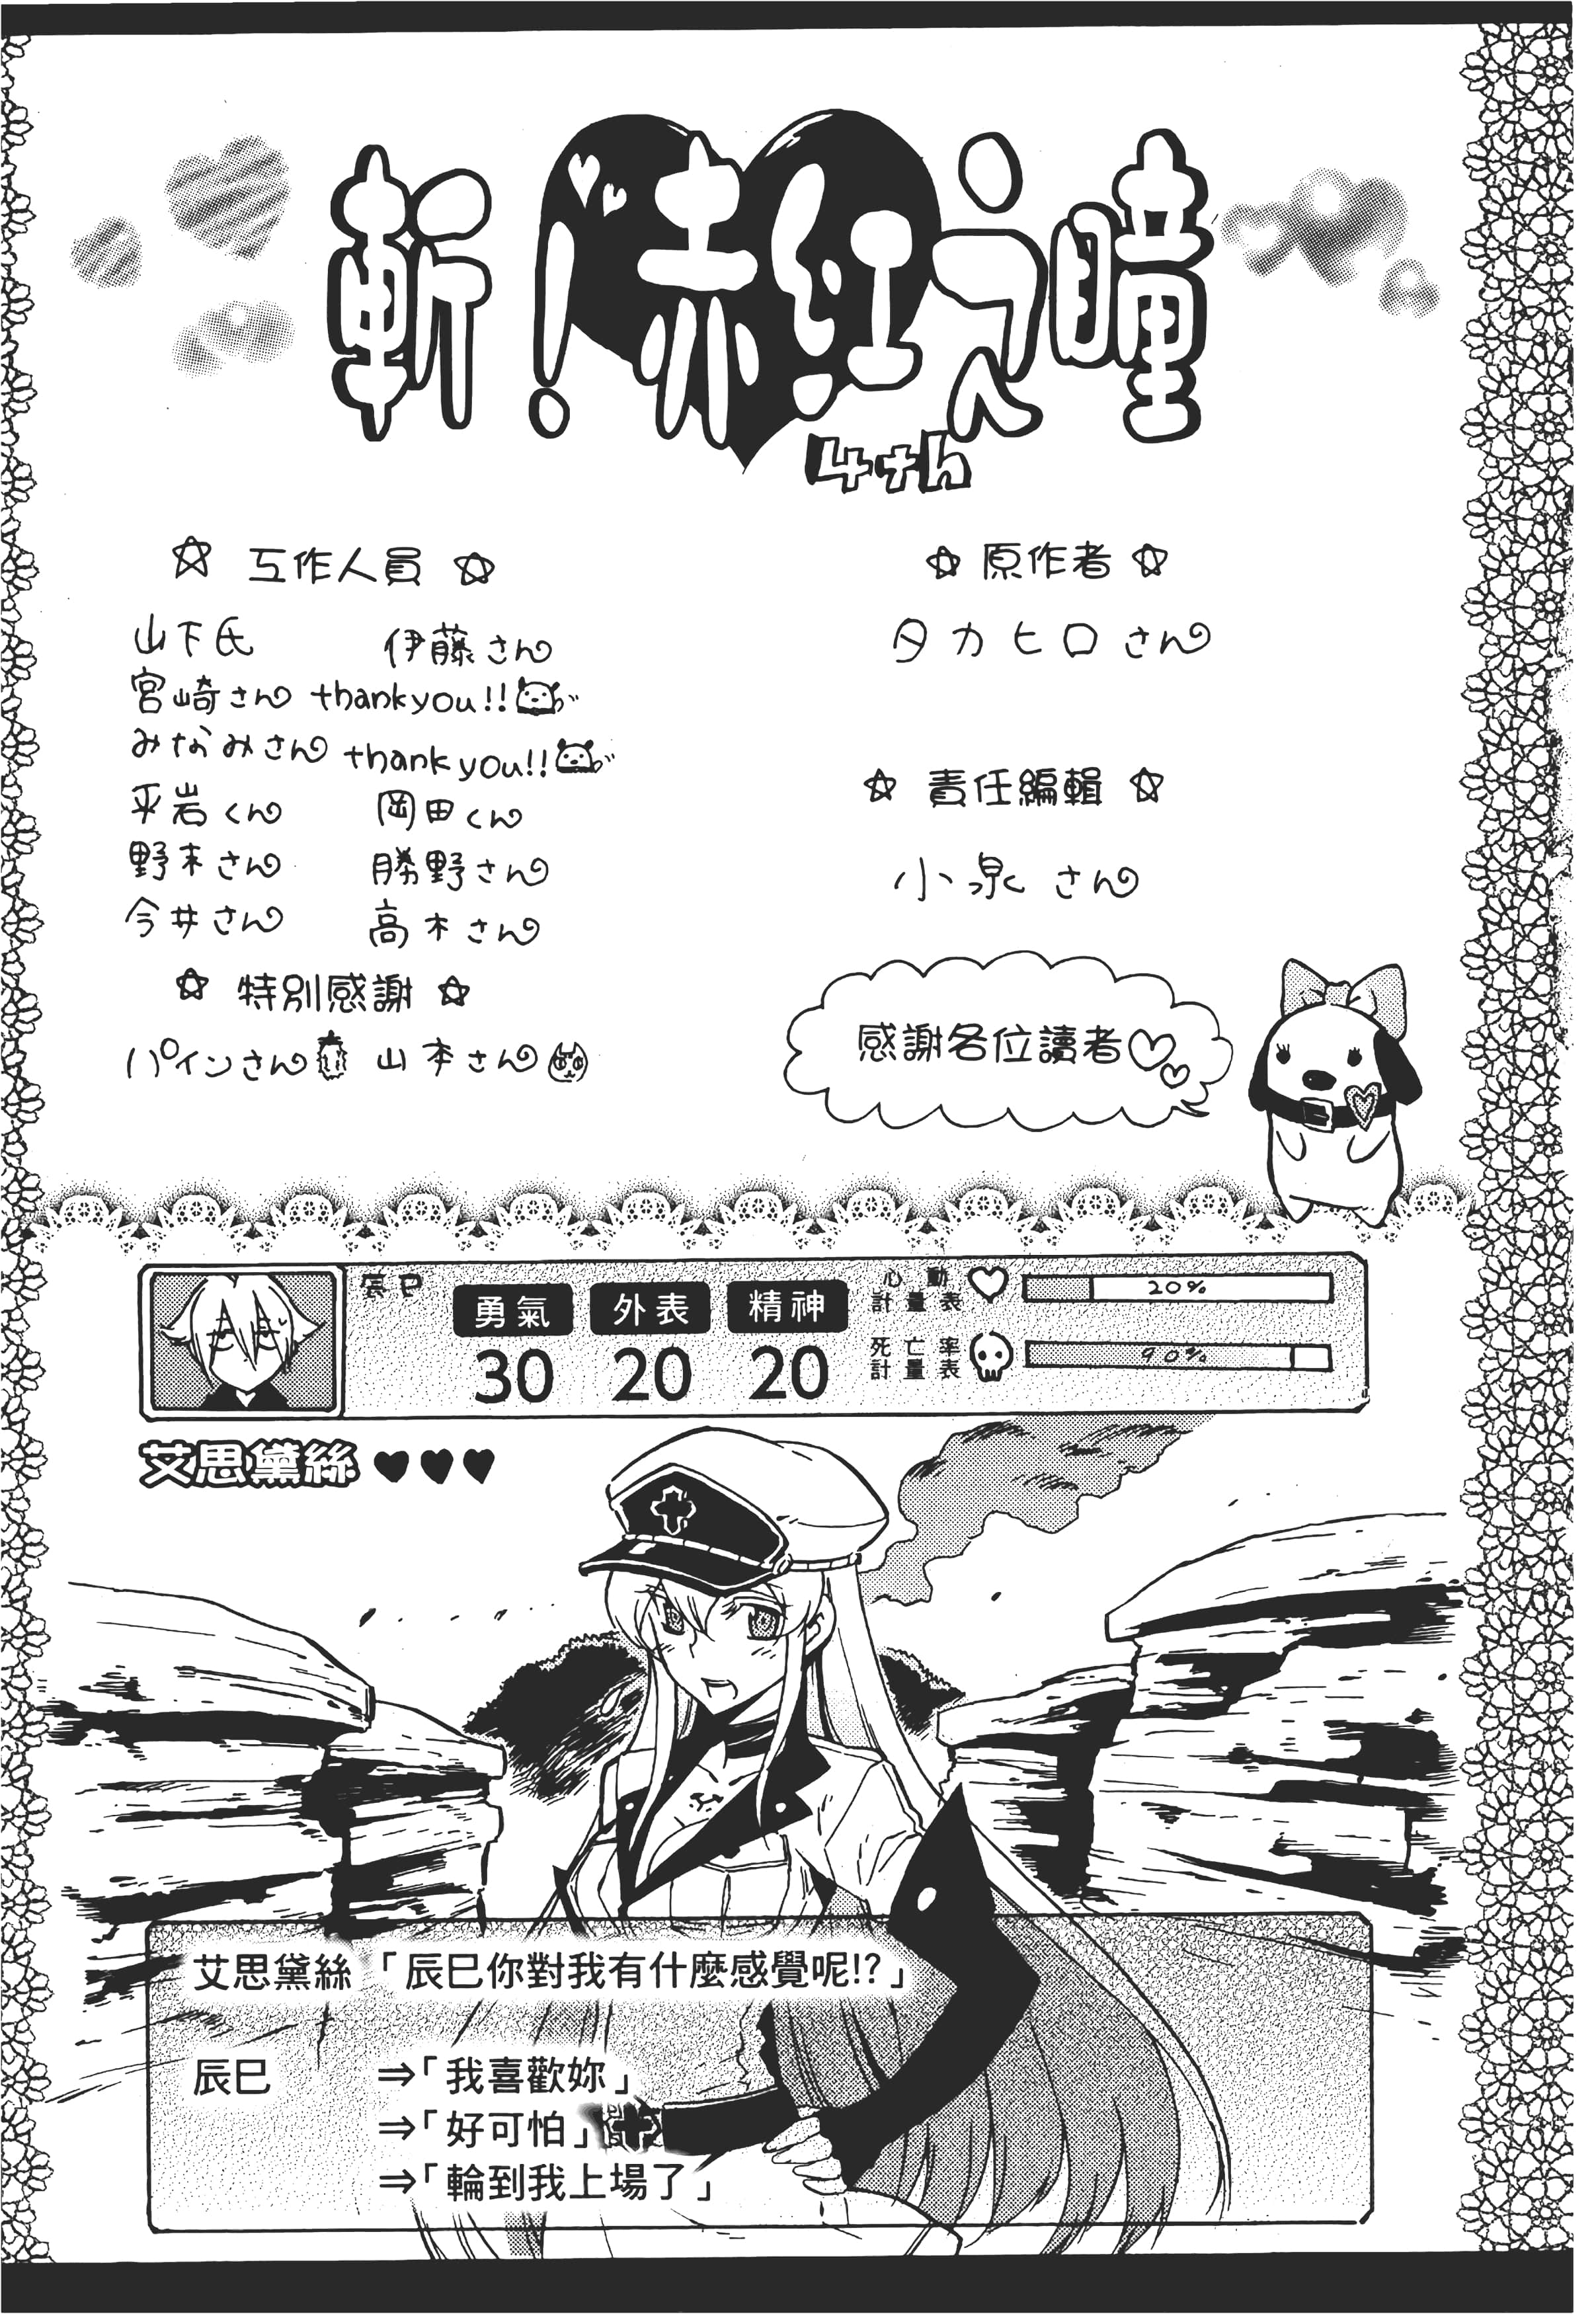 斬！赤紅之瞳
4th
☆ 工作人員 ☆
山下氏 伊藤さん
宮崎さん thank you!!
みなみさん thank you!!
平岩くん 岡田くん
野末さん 勝野さん
今井さん 高木さん
☆ 特別感謝 ☆
パインさん 山本さん
☆ 原作者 ☆
タカヒロさん
☆ 責任編輯 ☆
小泉さん
感謝各位讀者♡♡
辰巳
勇氣 外表 精神
30 20 20
心動計量表 20%
死亡率計量表 90%
艾思黛絲 ♥♥♥
艾思黛絲「辰巳你對我有什麼感覺呢!?」
辰巳 ⇒「我喜歡妳」
⇒「好可怕」
⇒「輪到我上場了」